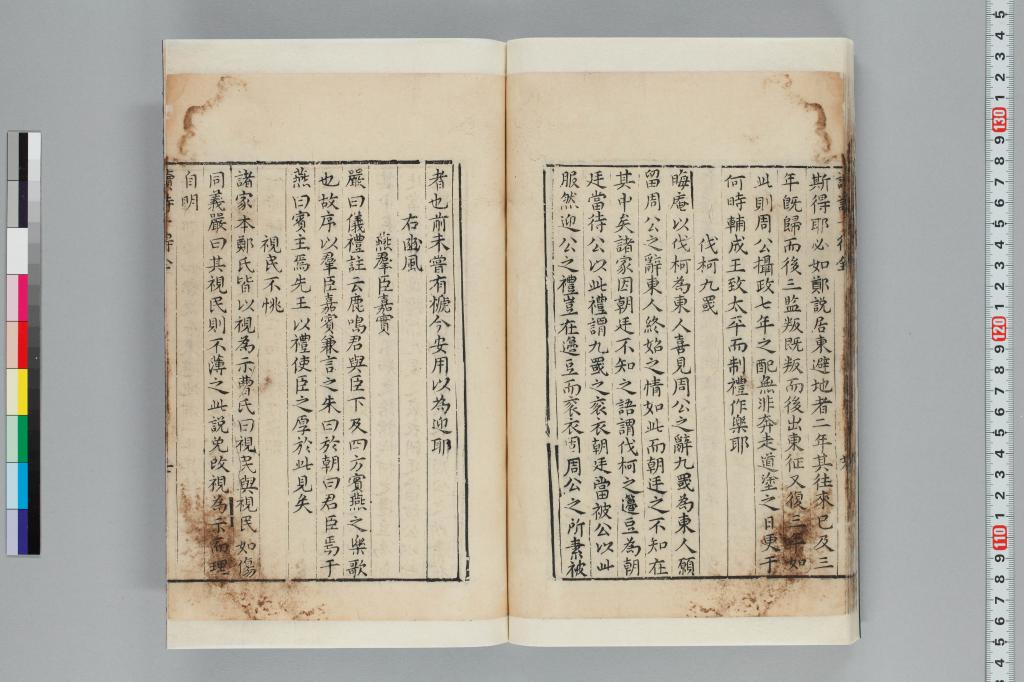 斯得耶必如鄭說居東避地者二年其往來已及三
年旣歸而後三監叛旣叛而後出東征又復三年如
此則周公攝政七年之配無非奔走道塗之日更于
何時輔成王致太平而制禮作樂耶
伐柯九罭
晦庵以伐柯為東人喜見周公之辭九罭為東人願
留周公之辭東人終始之情如此而朝廷之不知在
其中矣諸家因朝廷不知之語謂伐柯之籩豆為朝
廷當待公以此禮謂九罭之衮衣朝廷當被公以此
服然迎公之禮豈在籩豆而衮衣固周公之所素被
者也前未嘗有褫今安用以為迎耶
右豳風
燕羣臣嘉賓
嚴曰儀禮註云鹿鳴君與臣下及四方賓燕之樂歌
也故序以羣臣嘉賓兼言之朱曰於朝曰君臣焉于
燕曰賓主焉先王以禮使臣之厚於此見矣
視民不恌
諸家本鄭氏皆以視為示曹氏曰視民與視民如傷
同義嚴曰其視民則不薄之此說免改視為示而理
自明